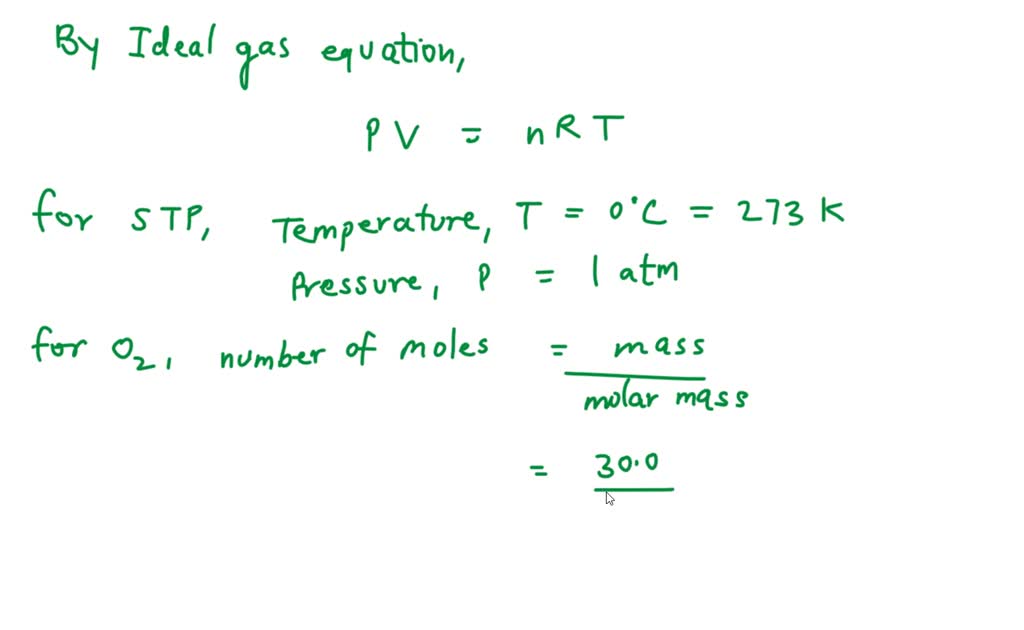 By Ideal gas equation,
PV = nRT
for STP, Temperature, T = 0°C = 273 K
Pressure, P = 1 atm
for O₂, number of moles = mass
molar mass
= 30.0